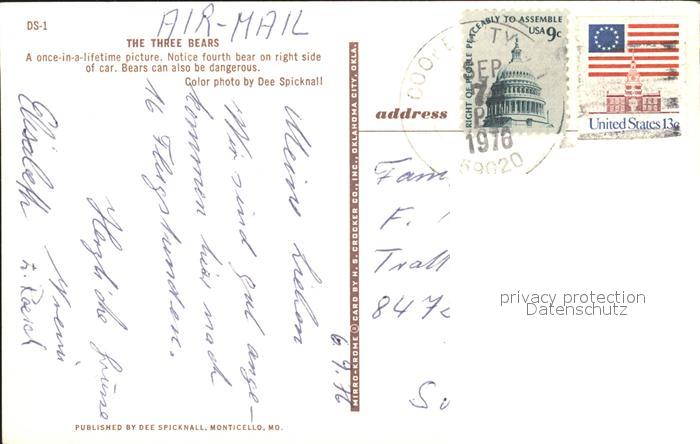 DS-1
AIR-MAIL
THE THREE BEARS
A once-in-a-lifetime picture. Notice fourth bear on right side
of car. Bears can also be dangerous.
Color photo by Dee Spicknall
6.9.76
Meine Lieben
Wir sind gut ange-
kommen hier nach
16 Flugstunden.
Herzliche Grüsse
Elisabeth
PUBLISHED BY DEE SPICKNALL, MONTICELLO, MO.
MIRRO-KROME ® CARD BY H. S. CROCKER CO., INC., OKLAHOMA CITY, OKLA.
RIGHT OF PEOPLE PEACEABLY TO ASSEMBLE
USA 9c
United States 13c
COOKE CITY
SEP
7
PM
1976
59020
address
Fam
F.
Trall
847
privacy protection
Datenschutz